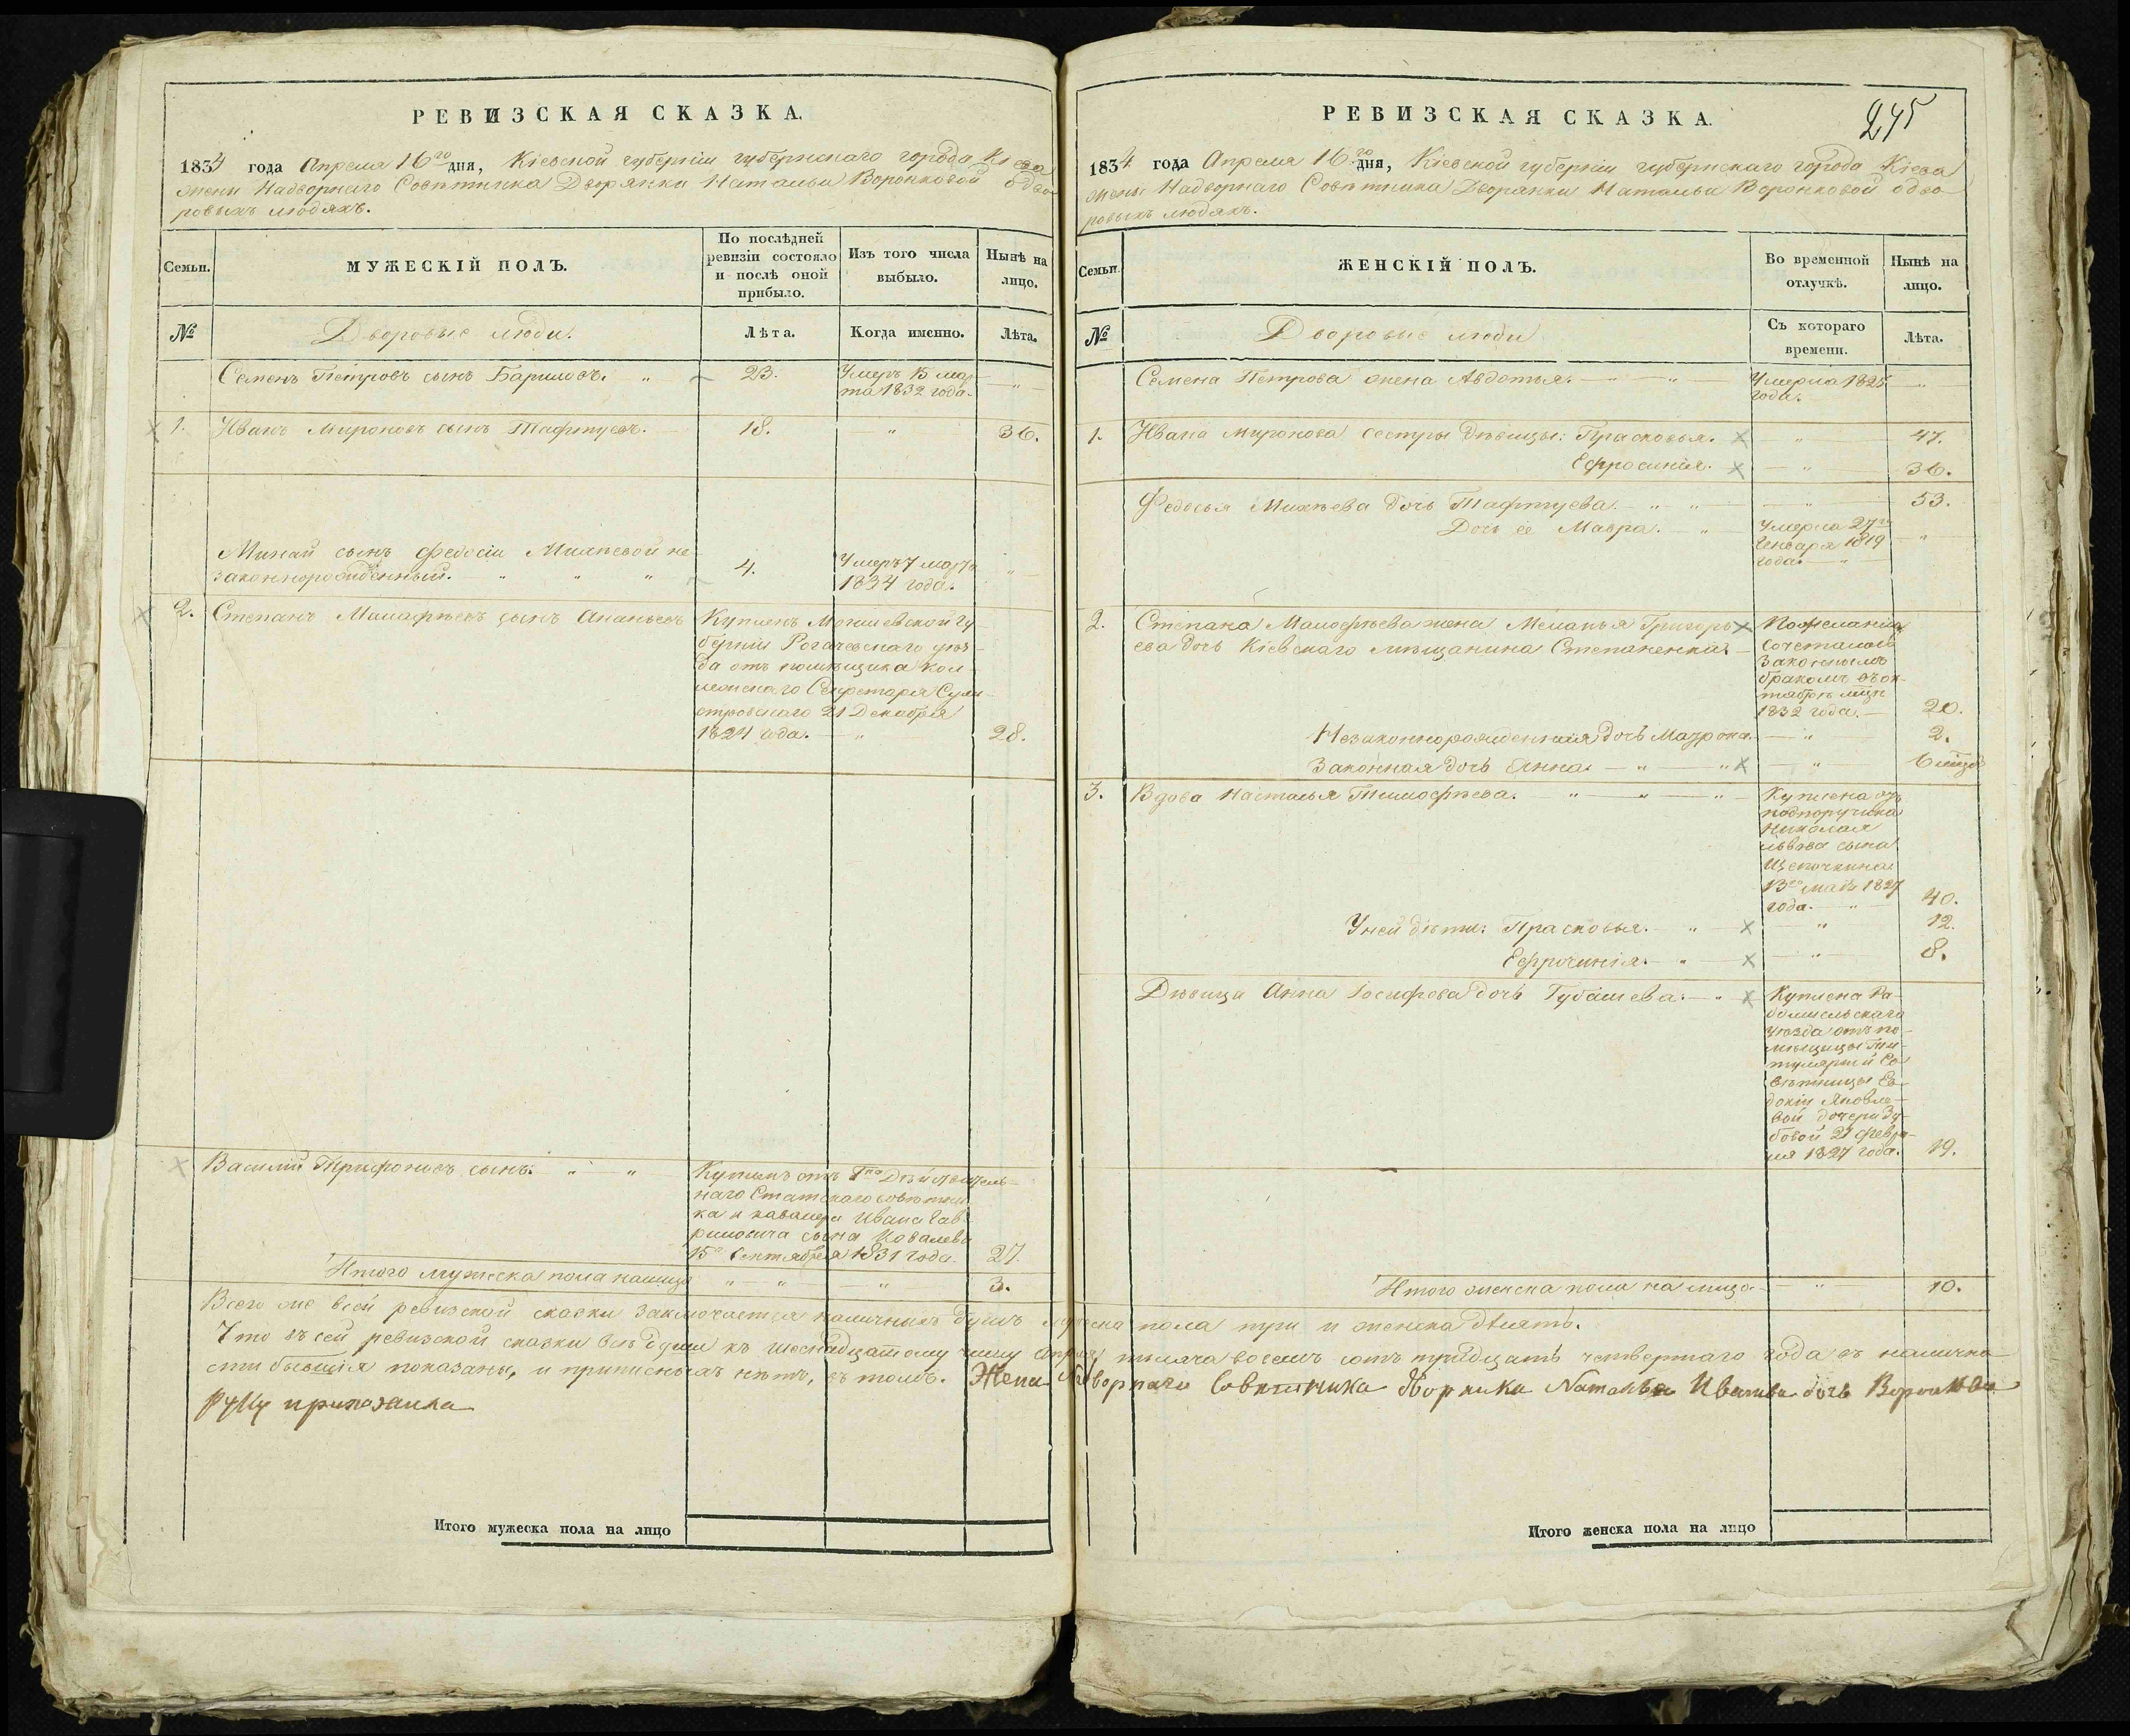 РЕВИЗСКАЯ СКАЗКА.
1834 года Апреля 16го дня, Кіевской губерніи губернскаго города Кіева
жены Надворнаго Совѣтника Дворянки Натальи Воронковой о дво-
ровыхъ людяхъ.
Семьи.
МУЖЕСКІЙ ПОЛЪ.
По послѣдней
ревизіи состояло
и послѣ оной
прибыло.
Изъ того числа
выбыло.
Нынѣ на
лицо.
№
Дворовые люди.
Лѣта.
Когда именно.
Лѣта.
Семенъ Петровъ сынъ Бариловъ. "
23.
Умеръ 15 мар-
та 1832 года.
"
1.
Иванъ Мироновъ сынъ Тафтуевъ.
18.
"
36.
Минай сынъ Федосіи Михѣевой не-
законнорожденный. " " "
4.
Умеръ 7 марта
1834 года.
"
2.
Степанъ Малафѣевъ сынъ Ананьевъ
Купленъ Могилевской гу-
берніи Рогачевскаго уѣз-
да отъ помѣщика Кол-
лежскаго Секретаря
21 Декабря
1824 года. "
28.
Василій Трифоновъ сынъ. " "
Купленъ отъ Гна Дѣйствитель-
наго Статскаго совѣтни-
ка и кавалера Ивана Гав-
риловича сына Ковалева
15го Сентября 1831 года.
27.
Итого мужеска пола налицо " " "
3.
Всего же всей ревизской сказки заключается наличныхъ душъ мужеска
Что въ сей ревизской сказки всѣ души къ шеснадцатому числу Апреля
сти бывшія показаны, и прописныхъ нѣтъ, въ томъ. Жена
руку приложила
Итого мужеска пола на лицо
РЕВИЗСКАЯ СКАЗКА.
245
1834 года Апреля 16го дня, Кіевской губерніи губернскаго города Кіева
жены Надворнаго Совѣтника Дворянки Натальи Воронковой о дво-
ровыхъ людяхъ.
Семьи.
ЖЕНСКІЙ ПОЛЪ.
Во временной
отлучкѣ.
Нынѣ на
лицо.
№
Дворовые люди
Съ котораго
времени.
Лѣта.
Семена Петрова жена Авдотья. " "
Умерла 1825
года.
"
1.
Ивана Миронова сестры дѣвицы: Прасковья.
"
47.
Ефросинія.
"
36.
Федосья Михѣева дочь Тафтуева. " "
"
53.
Дочь ее Мавра. "
Умерла 27го
Генваря 1819
года. "
"
2.
Степана Малофѣева жена Меланья Григорь-
ева дочь Кіевскаго мѣщанина Степаненка.
По желанію
сочеталась
законнымъ
бракомъ въ ок-
тябрѣ мцѣ
1832 года.
20.
Незаконнорожденная дочь Матрона.
"
2.
Законная дочь Анна. " "
"
6 мцовъ
3.
Вдова Настасья Тимофѣева. " " "
Куплена отъ
подпоручика
Николая
Львова сына
Щепочкина
13го мая 1827
года. "
40.
У ней дѣти: Прасковья. "
"
12.
Ефросинія. "
"
8.
Дѣвица Анна Іосифова дочь Губашева. "
Куплена Ра-
домысльскаго
уѣзда отъ по-
мѣщицы Ти-
тулярной Со-
вѣтницы Ев-
докіи Яковле-
вой дочери Зу-
бовой 21 Февра-
ля 1827 года.
19.
Итого женска пола на лицо
"
10.
пола три и женска дѣсять.
тысяча восемь сотъ тридцать четвертаго года въ налично-
Надворнаго Совѣтника Дворянка Наталья Иванова дочь Воронкова
Итого женска пола на лицо